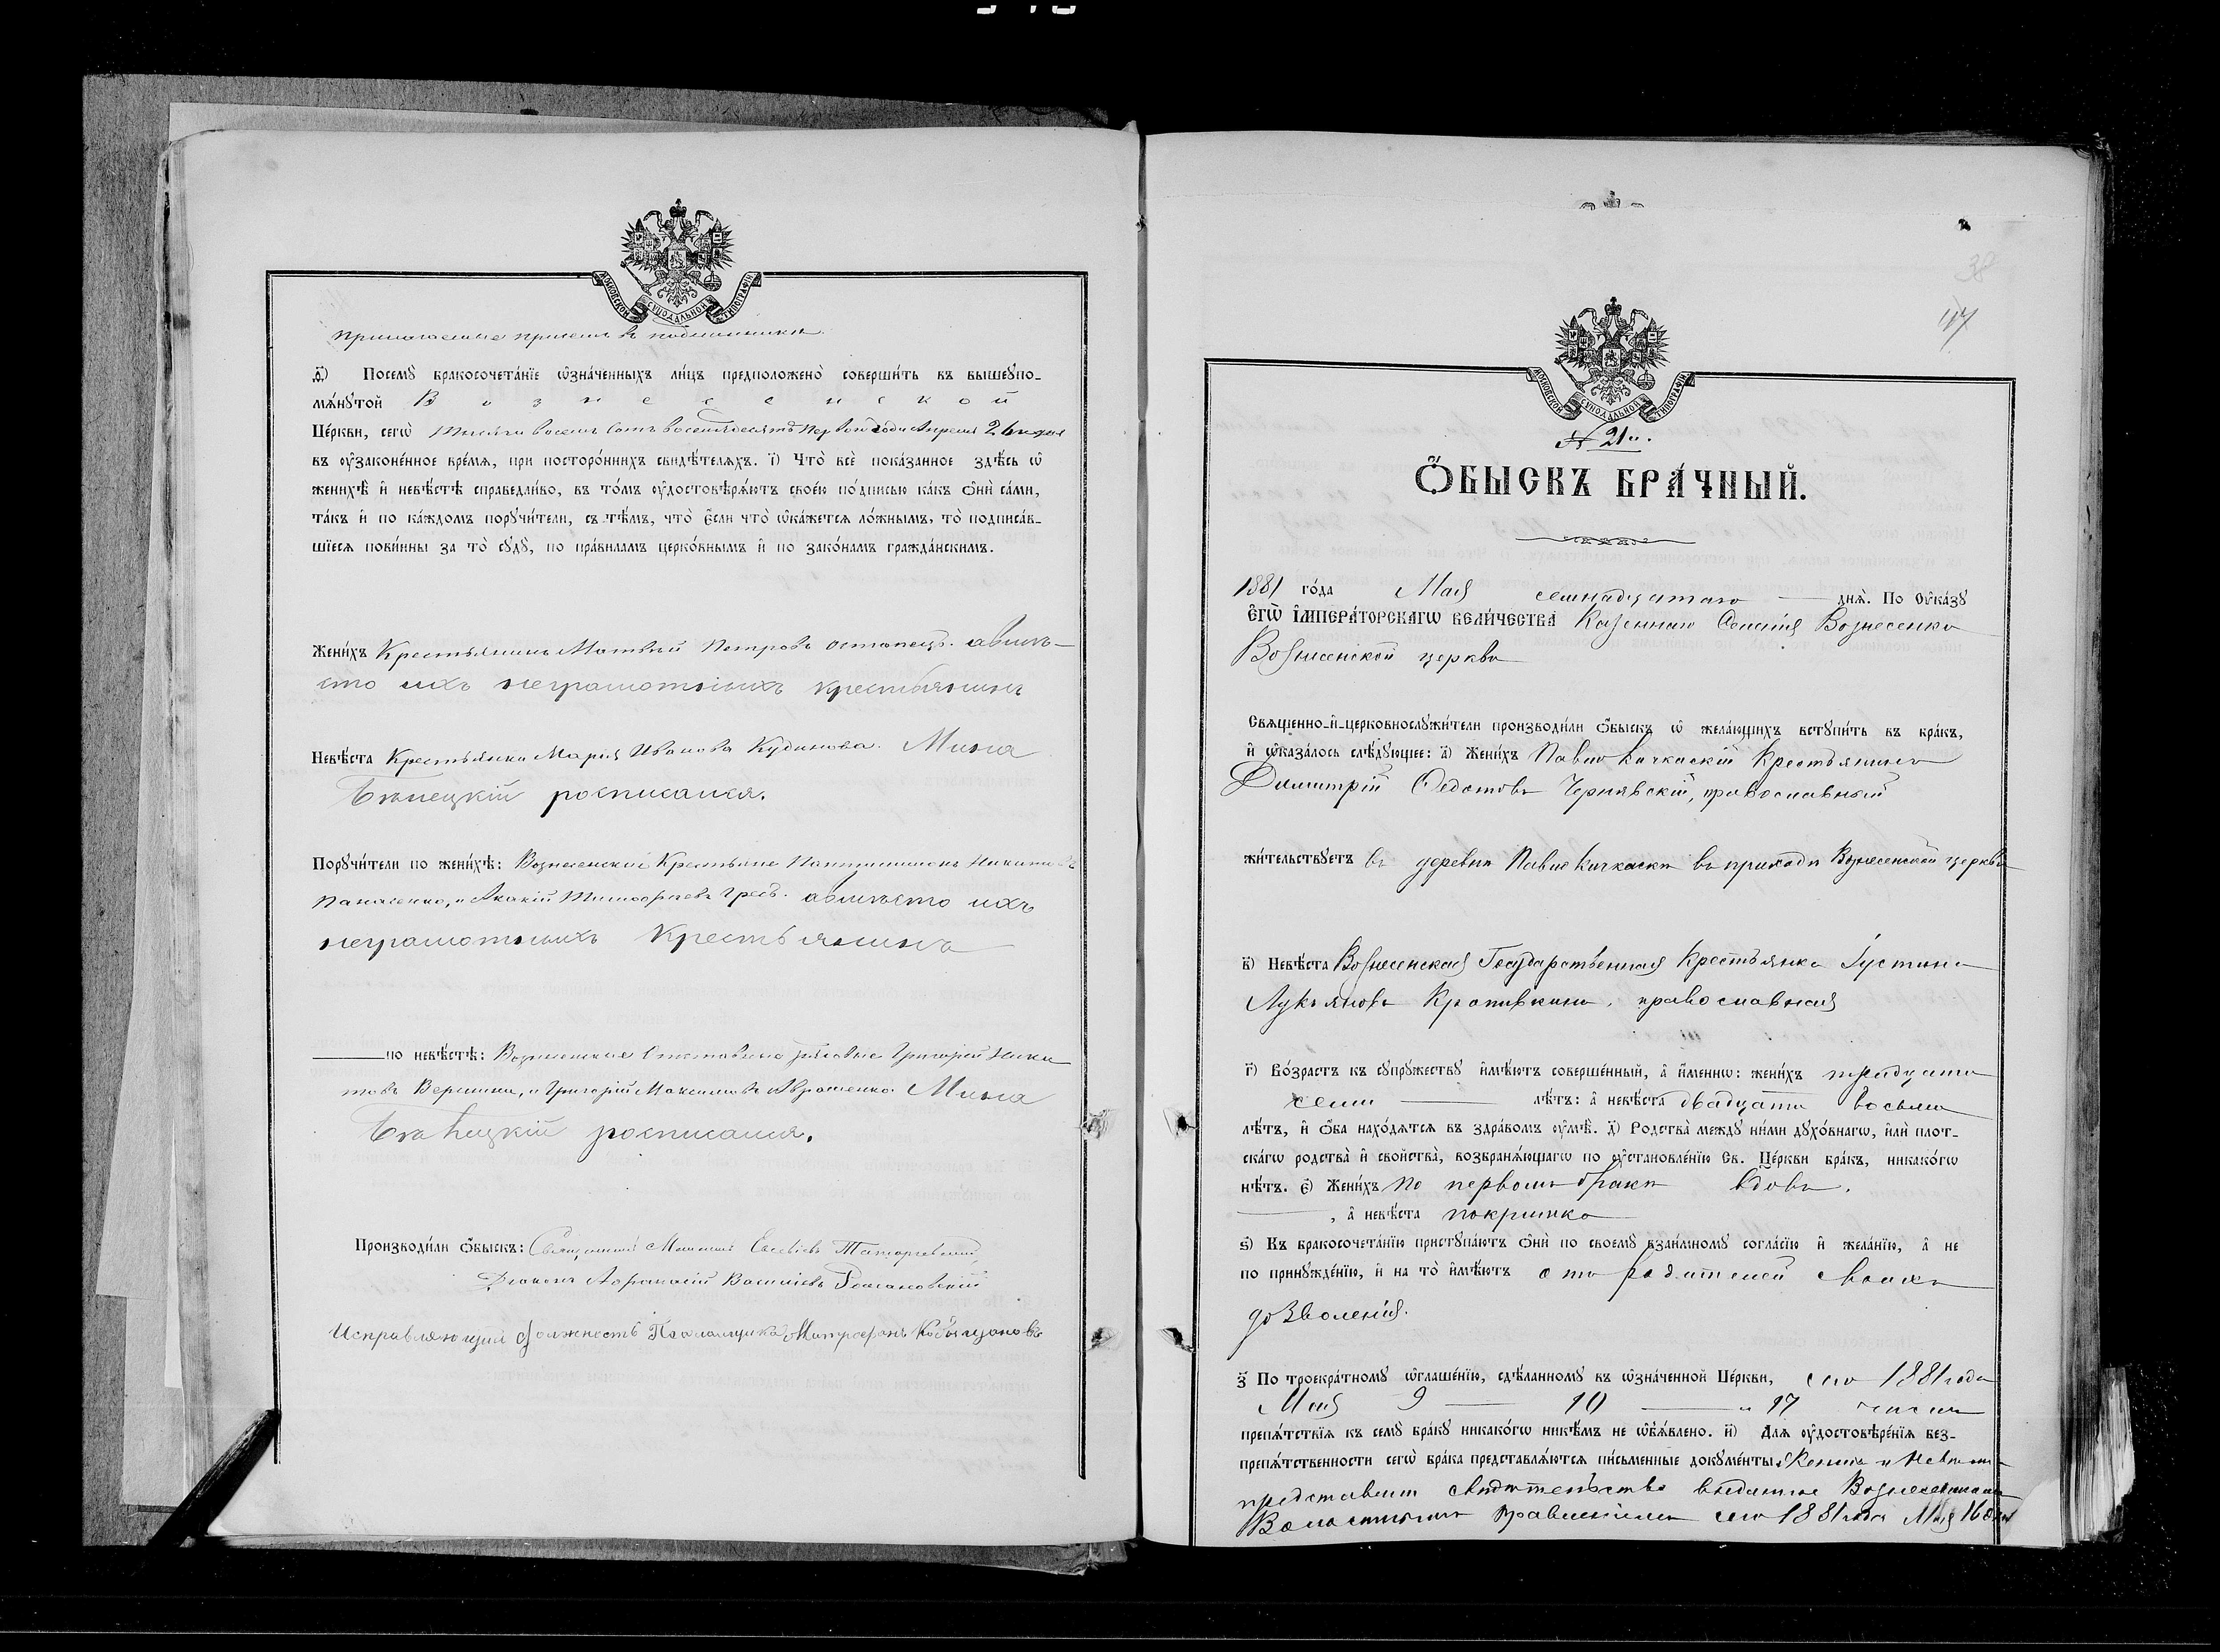 МОСКОВСКОЙ СѴНОДАЛЬНОЙ ТИПОГРАФІИ
ѳ҃) Посемꙋ̀ бракосочета́нїе ѡ҆зна́ченныхъ ли́цъ предположено̀ соверши́ть въ вышеꙋпо-
мѧ́нꙋтой Вознесенской
Це́ркви, сегѡ̀ тысяча восемь сотъ восемьдесятъ первого года Апреля 26 дня
въ ᲂу҆законе́нное вре́мѧ, при посторо́ннихъ свидѣ́телѧхъ. і҃) Что̀ всѐ пока́занное здѣ́сь ѡ҆
женихѣ̀ и҆ невѣ́стѣ справедли́во, въ то́мъ ᲂу҆достовѣрѧ́ютъ свое́ю по́дписью ка́къ ѻ҆нѝ са́ми,
та́къ и҆ по ка́ждомъ порꙋчи́тели, съ тѣ́мъ, что̀ є҆́сли что̀ ѡ҆ка́жетсѧ ло́жнымъ, то̀ подписа́в-
шїесѧ пови́нны за то̀ сꙋдꙋ̀, по пра́виламъ церко́внымъ и҆ по зако́намъ гражда́нскимъ.
Жени́хъ Крестьянинъ Матвѣй Петровъ остапецъ. авмѣ-
сто ихъ неграмотныхъ крестьянинъ
Невѣ́ста Крестьянка Марія Иванова Кудинова. Мина
Бѣлецкій росписался.
Порꙋчи́тели по женихѣ̀: Вознесенскіе Крестьяне Пантилимонъ Никитовъ
Панасенко, и Акакій Тимофѣевъ Гребъ. авмѣсто ихъ
неграмотныхъ Крестьянинъ
по невѣ́стѣ: Вознесенские рядовые Григорій Ники
товъ Вершина, и Григорій Максимовъ Авраменко. Мина
Бѣлецкій росписался.
Производи́ли ѻ҆́быскъ: Священникъ Евсевіевъ
Діаконъ Афанасій Василіевъ
Исправляющій должность Псаломщика Митрофанъ
38
47
МОСКОВСКОЙ СѴНОДАЛЬНОЙ ТИПОГРАФІИ
№ 21й.
Ѻ҆́БЫСКЪ БРА́ЧНЫЙ.
1881 го́да Мая семнадцатаго днѧ̀. По Оу҆ка́зꙋ
Є҆ГѠ̀ І҆МПЕРА́ТОРСКАГѠ ВЕЛИ́ЧЕСТВА Казеннаго Селенія Вознесенко
Вознесенской церкви
Свѧще́нно-и҆-церковнослꙋжи́тели производи́ли ѻ҆́быскъ ѡ҆ жела́ющихъ встꙋпи́ть въ бра́къ,
и҆ ѡ҆каза́лось слѣ́дꙋющее: а҃) Жени́хъ Павло Кичкаскій Крестьянинъ
Димитрій Федотовъ Чернявскій, православный
жи́тельствꙋетъ въ деревнѣ Павло Кичкаскѣ въ приходѣ Вознесенской церкви
в҃) Невѣ́ста Вознесенская Государственная Крестьянка Іустина
Лукьянова Кропивкина, православная
г҃) Во́зрастъ къ сꙋпрꙋ́жествꙋ и҆мѣ́ютъ соверше́нный, а҆ и҆́меннѡ: жени́хъ тридцати
семи лѣ́тъ: а҆ невѣ́ста двадцати восьми
лѣ́тъ, и҆ ѻ҆́ба нахо́дѧтсѧ въ здра́вомъ ᲂу҆мѣ̀. д҃) Родства̀ междꙋ̀ ни́ми дꙋхо́внагѡ, и҆лѝ плот-
ска́гѡ родства̀ и҆ свойства̀, возбранѧ́ющагѡ по ᲂу҆становле́нїю Св. Це́ркви бра́къ, никако́гѡ
нѣ́тъ. є҃) Жени́хъ по первомъ бракѣ вдовъ.
, а҆ невѣ́ста покритка
ѕ҃) Къ бракосочета́нїю пристꙋпа́ютъ ѻ҆нѝ по своемꙋ̀ взаи́мномꙋ согла́сїю и҆ жела́нїю, а҆ не
по принꙋжде́нїю, и҆ на то̀ и҆мѣ́ютъ отъ родителей своихъ
дозволенія.
з҃ По троекра́тномꙋ ѡ҆глаше́нїю, сдѣ́ланномꙋ въ ѡ҆зна́ченной Це́ркви, сего 1881 года
Мая 9 10 и 17 числа
препѧ́тствїѧ къ семꙋ̀ бра́кꙋ никако́гѡ никѣ́мъ не ѡ҆б̾ѧ́влено. и҃) Длѧ ᲂу҆достовѣре́нїѧ без-
препѧ́тственности сегѡ̀ бра́ка представлѧ́ютсѧ пи́сьменные докꙋме́нты: Жениха и Невѣсты
представлены свидѣтельство выданное Вознесенскимъ
Волостнымъ Правленіемъ сего 1881 года Мая 16 дня